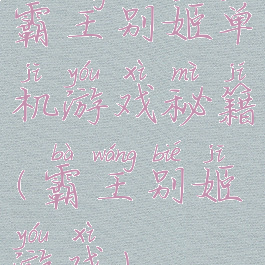 霸王别姬单
jī yóu xì mì jí
机游戏秘籍
bà wáng bié jī
(霸王别姬
yóu xì
游戏)